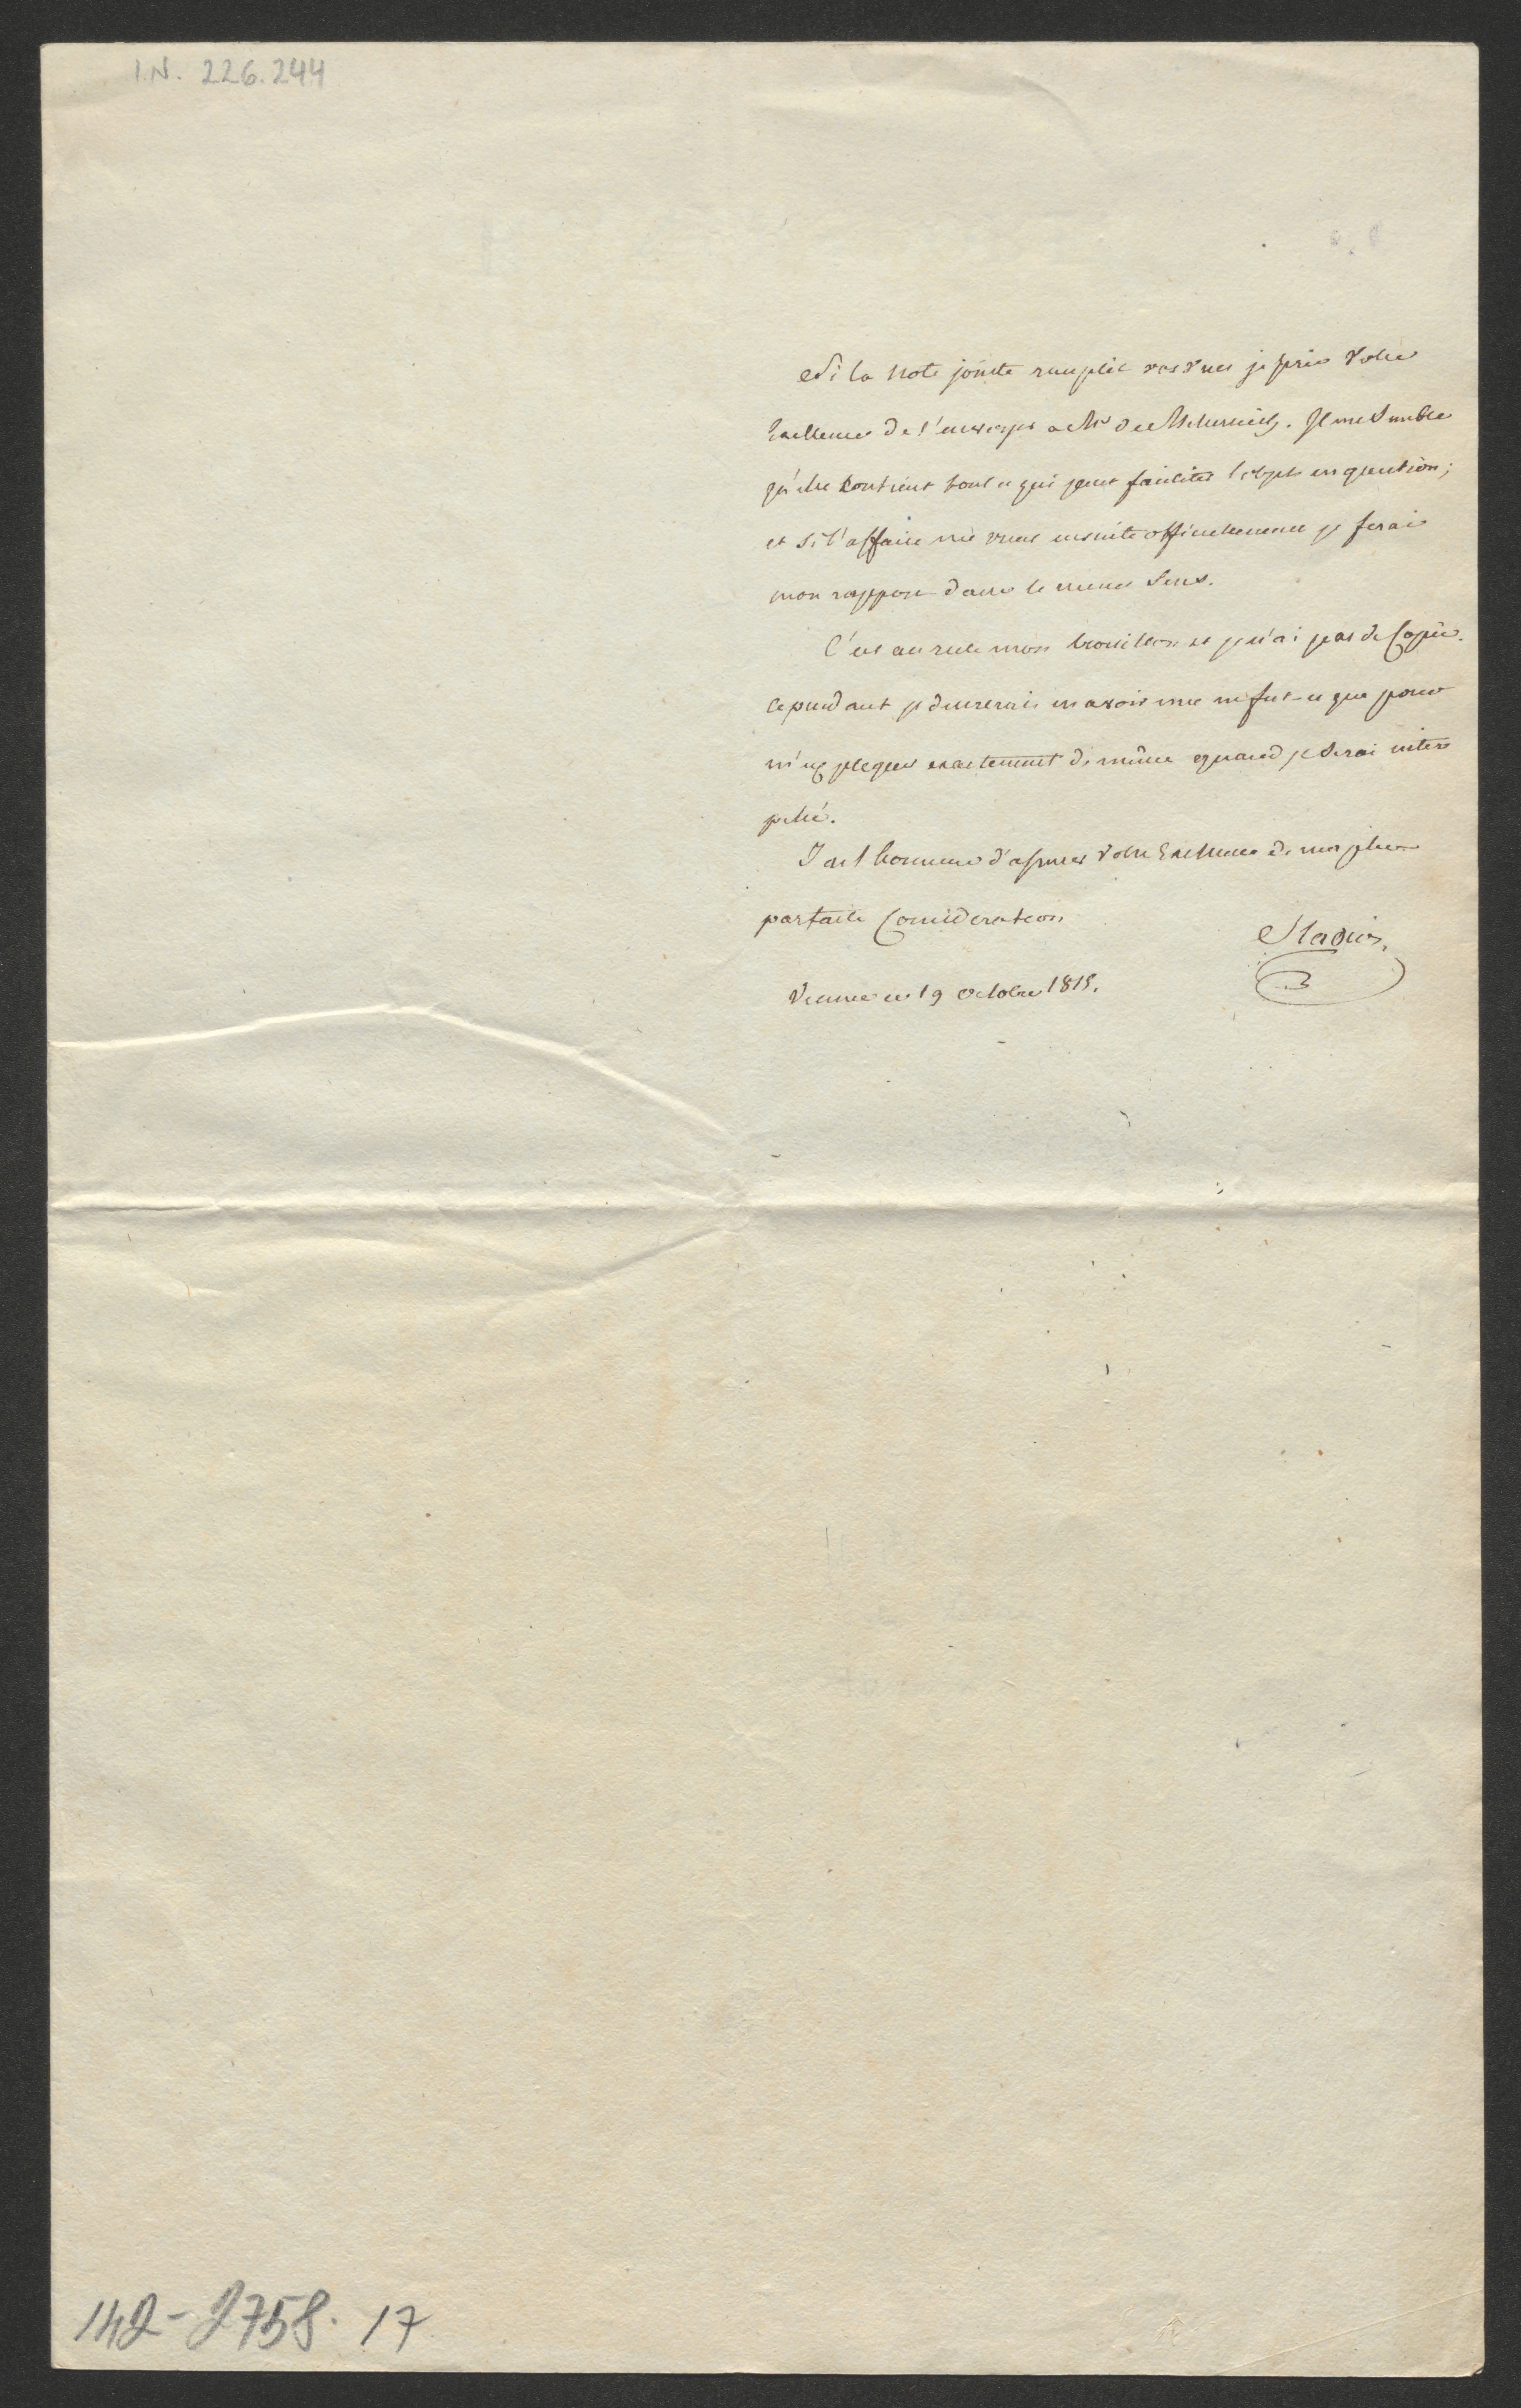 I.N. 226.244
Si la note jointe remplit vos vues je prie Votre
Excellence de l'envoyer a Mr de Metternich. Il me Semble
qu'elle Contient tout ce qui peut faciliter l'objet en question;
et Si l'affaire me vient ensuite officiellement je ferai
mon rapport dans le meme Sens.
C'est au reste mon brouillon et je n'ai pas de Copie.
Cependant je desirerais en avoir une ne fut-ce que pour
m'expliquer exactement de même quand je Serai inter
pellé.
J'ai l'honneur d'assurer Votre Excellence de ma plus
parfaite Consideration
Stadion.
Vienne ce 19 Octobre 1815.
142-2758. 17